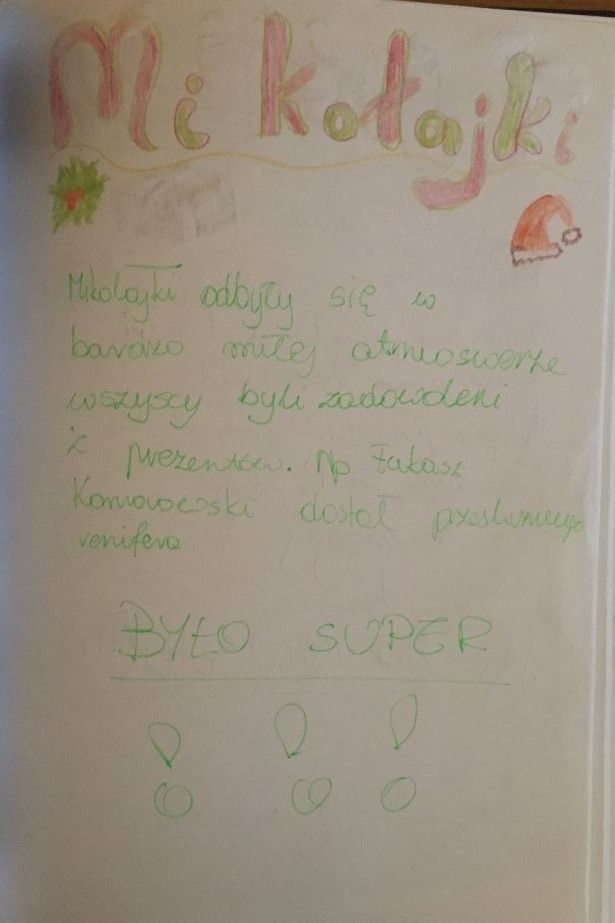 Mikołajki
Mikołajki odbyły się w
bardzo miłej atmoswerze
wszyscy byli zadowoleni
z prezentów. Np Łukasz
dostał
renifera
BYŁO SUPER
!!!